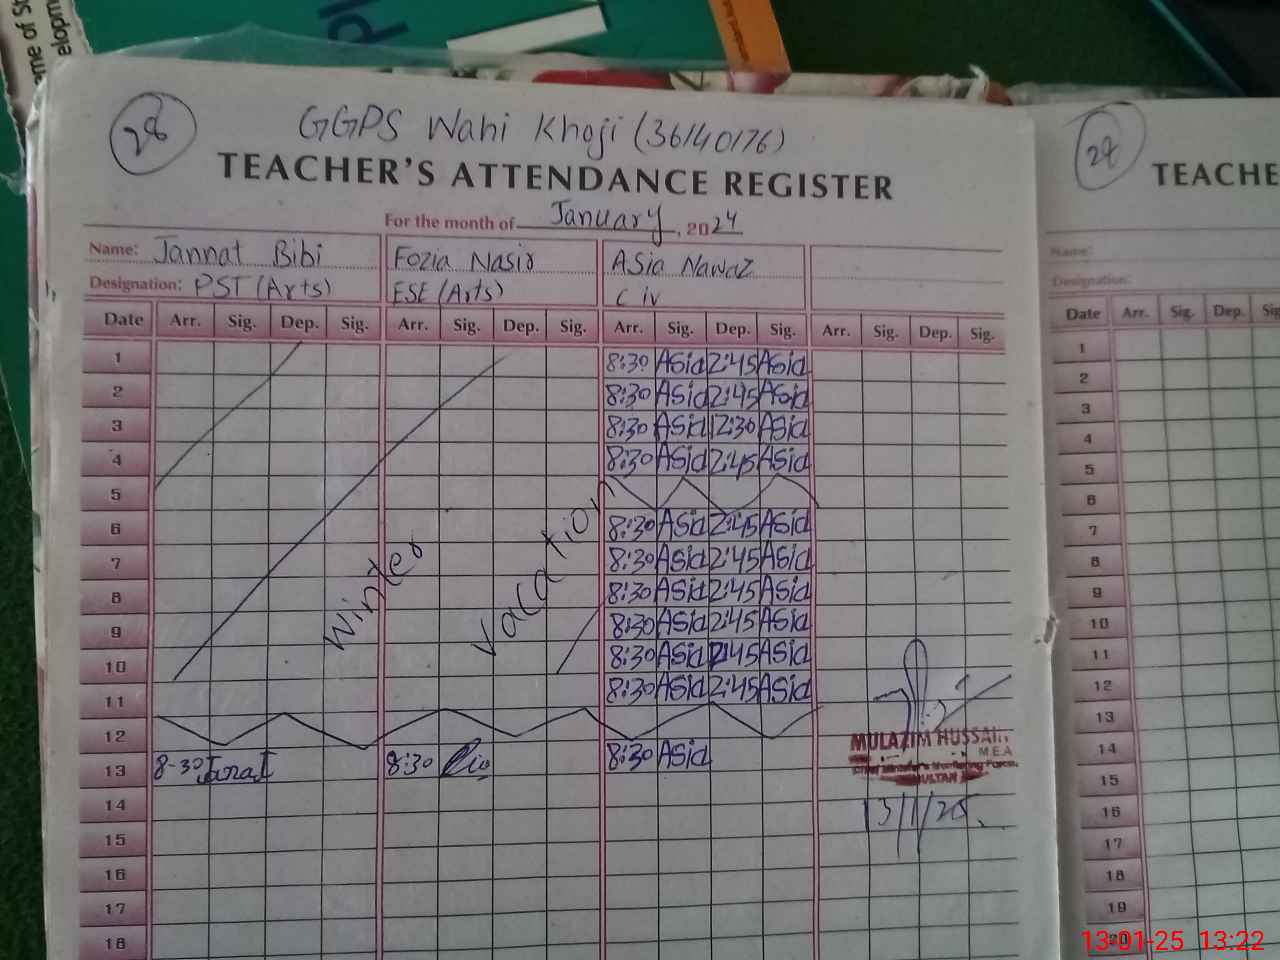 ame of St
elopm
28
GGPS Wahi Khoji (36140176)
TEACHER'S ATTENDANCE REGISTER
For the month of January, 2024
Name: Jannat Bibi Fozia Nasir Asia Nawaz
Designation: PST (Arts) ESE (Arts) C iv
Date Arr. Sig. Dep. Sig. Arr. Sig. Dep. Sig. Arr. Sig. Dep. Sig. Arr. Sig. Dep. Sig.
1 8:30 Asia 2:45 Asia
2 8:30 Asia 2:45 Asia
3 8:30 Asia 12:30 Asia
4 8:30 Asia 2:45 Asia
5
6 8:30 Asia 2:45 Asia
7 8:30 Asia 2:45 Asia
8 8:30 Asia 2:45 Asia
9 8:30 Asia 2:45 Asia
10 8:30 Asia 2:45 Asia
11 8:30 Asia 2:45 Asia
Winter Vacation
12
13 8-30 Janat 8:30 8:30 Asia
14
15
16
17
18
MULAZIM HUSSAIN
M.E.A
Chief Minister's Monitoring Force
MULTAN
13/1/25
TEACHE
Name:
Designation:
Date Arr. Sig. Dep. Sig
1
2
3
4
5
6
7
8
9
10
11
12
13
14
15
16
17
18
19
20
13-01-25 13:22